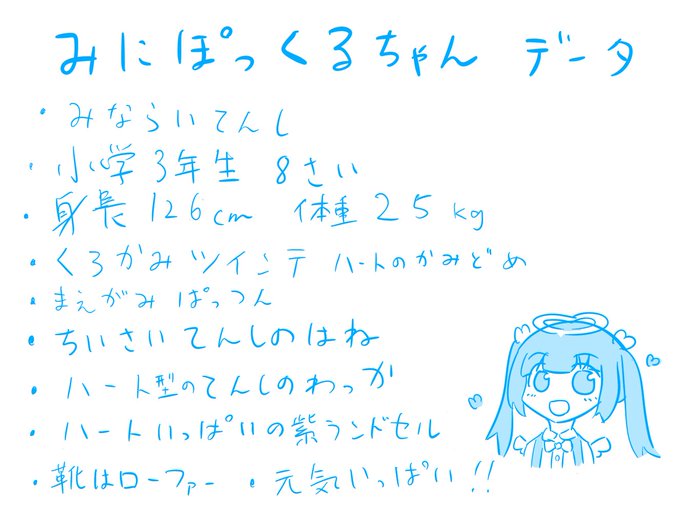 みにぽっくるちゃん データ
・みならいてんし
・小学3年生 8さい
・身長126cm 体重25kg
・くろかみツインテ ハートのかみどめ
・まえがみ ぱっつん
・ちいさいてんしのはね
・ハート型のてんしのわっか
・ハートいっぱいの紫ランドセル
・靴はローファー ・元気いっぱい!!